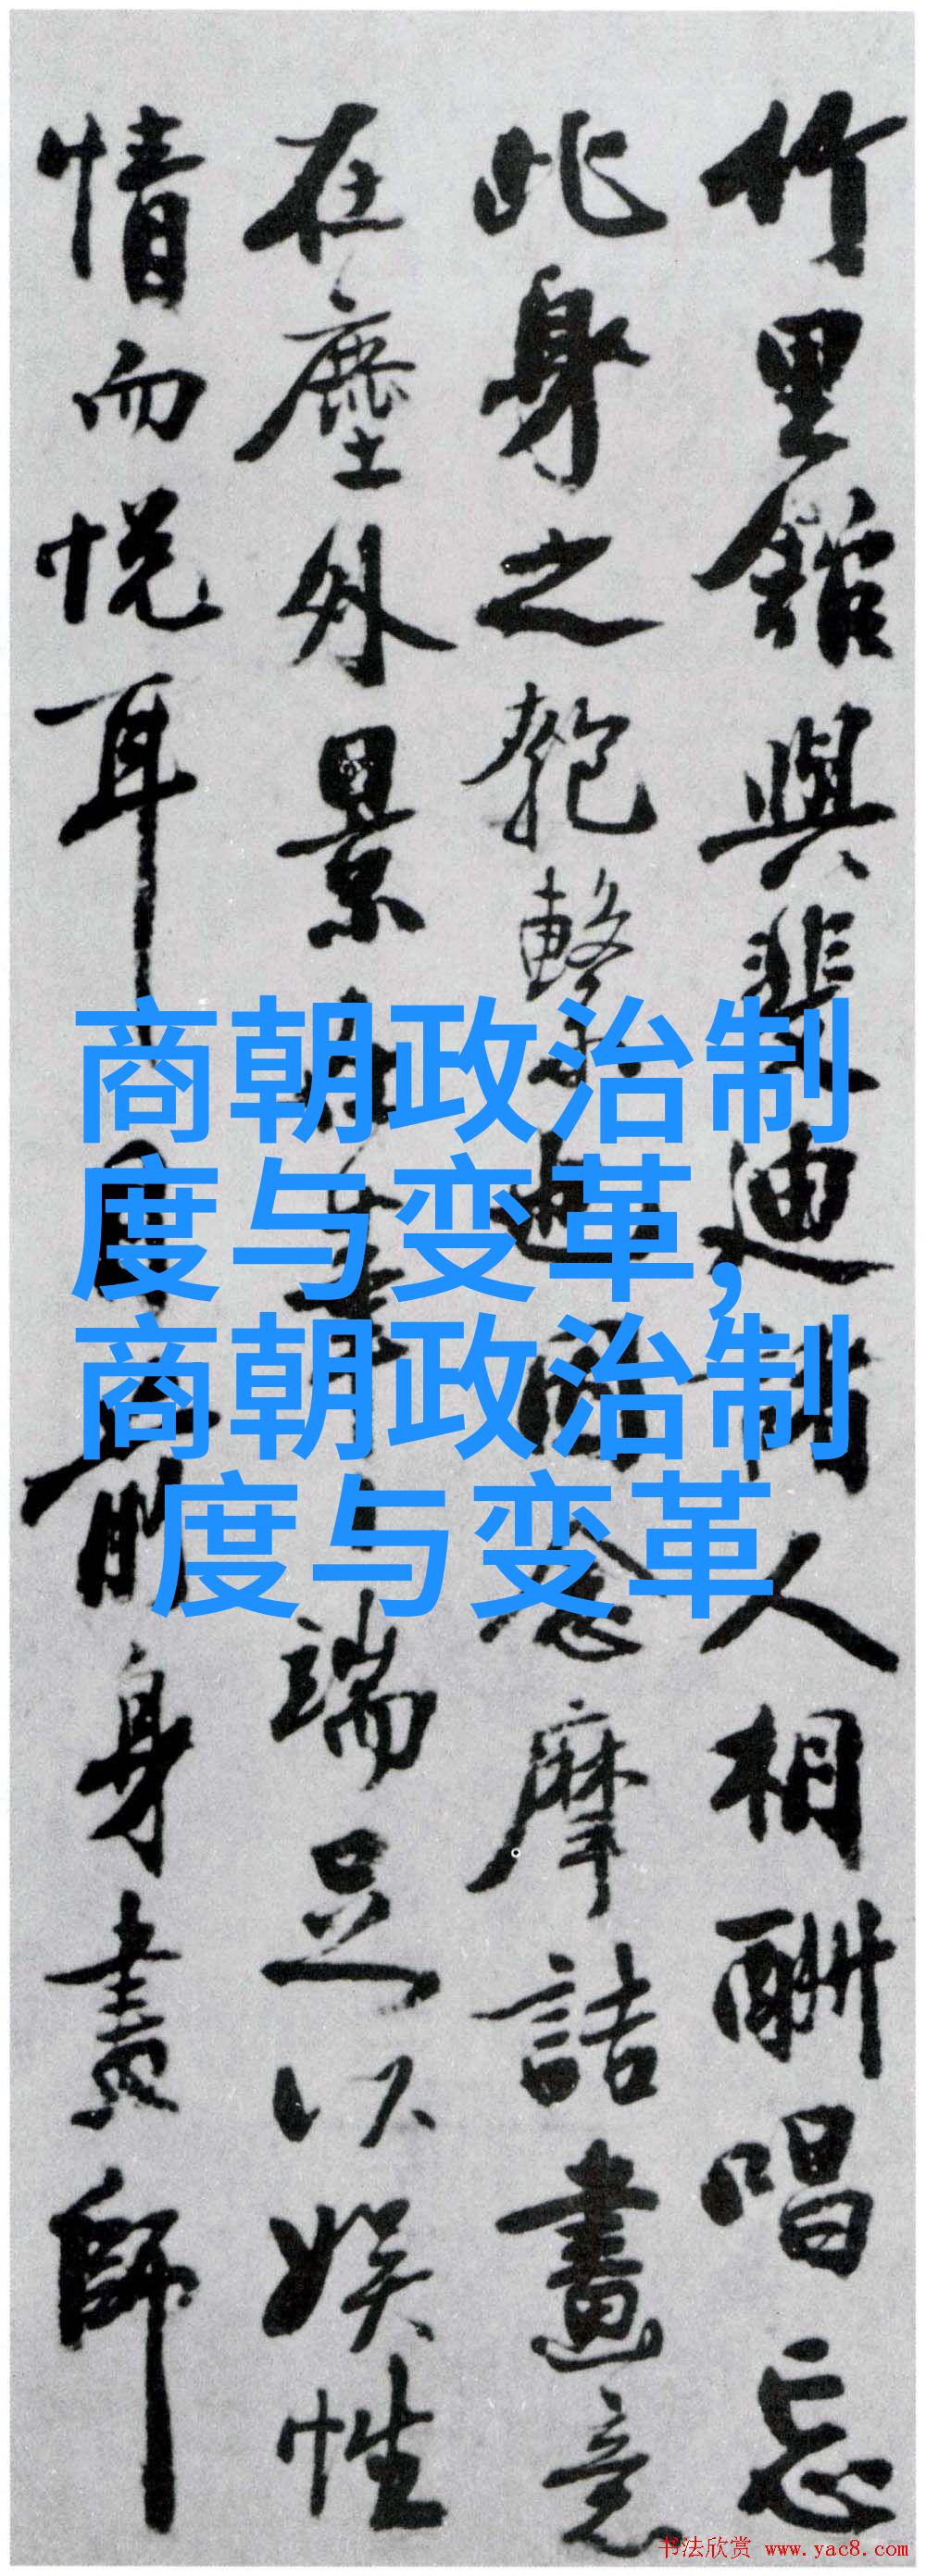 竹里館與裴迪諸人相酬唱忘
此身之匏繫也因念摩詰畫意
在塵外景端足以娛性
情而悅耳目前身畫師
商朝政治制
度与变革,
商朝政治制
度与变革
书法欣赏 www.yac8.com